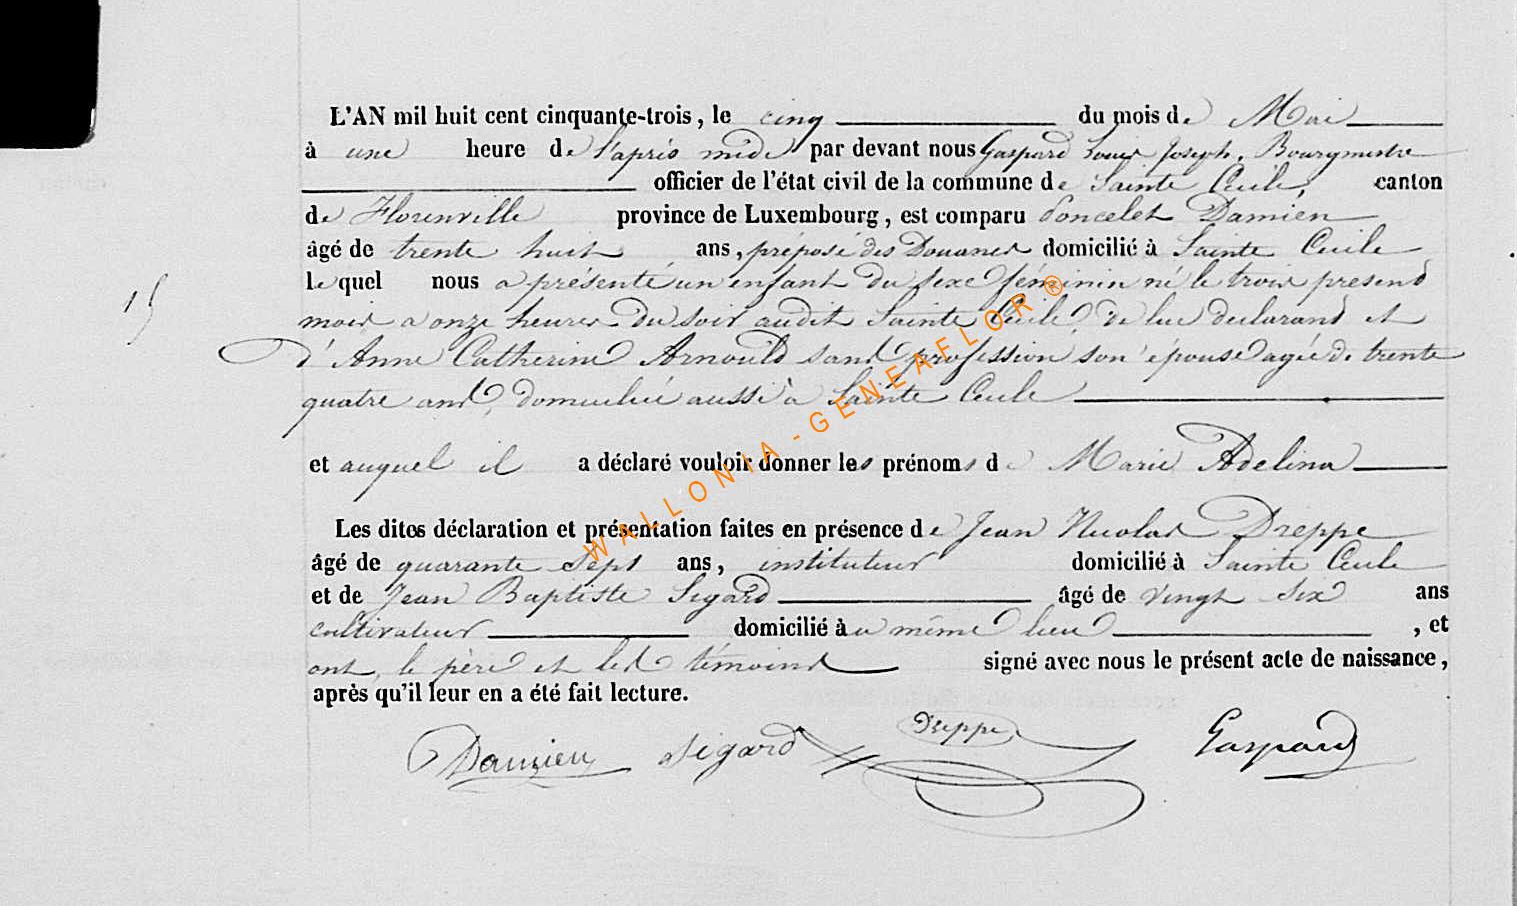 L'AN mil huit cent cinquante-trois, le cinq du mois de Mai
à une heure de l'après midi par devant nous Gaspard Louis Joseph, Bourgmestre
officier de l'état civil de la commune de Sainte Cécile, canton
de Florenville province de Luxembourg, est comparu Poncelet Damien
âgé de trente huit ans, préposé des Douanes domicilié à Sainte Cecile
lequel nous a présenté un enfant du sexe féminin né le trois present
15
mois a onze heures du soir audit Sainte Cécile, de lui declarant et
d'Anne Catherine Arnould sans profession son épouse agée de trente
quatre ans, domiciliée aussi à Sainte Cecile
et auquel il a déclaré vouloir donner les prénoms de Marie Adelina
Les dites déclaration et présentation faites en présence de Jean Nicolas Dreppe
âgé de quarante sept ans, instituteur domicilié à Sainte Cecile
et de Jean Baptiste Sigard âgé de vingt six ans
cultivateur domicilié au même lieu, et
ont, le père et les témoins signé avec nous le présent acte de naissance,
après qu'il leur en a été fait lecture.
Damien Sigard Dreppe Gaspard
WALLONIA - GENEAFLOR ®